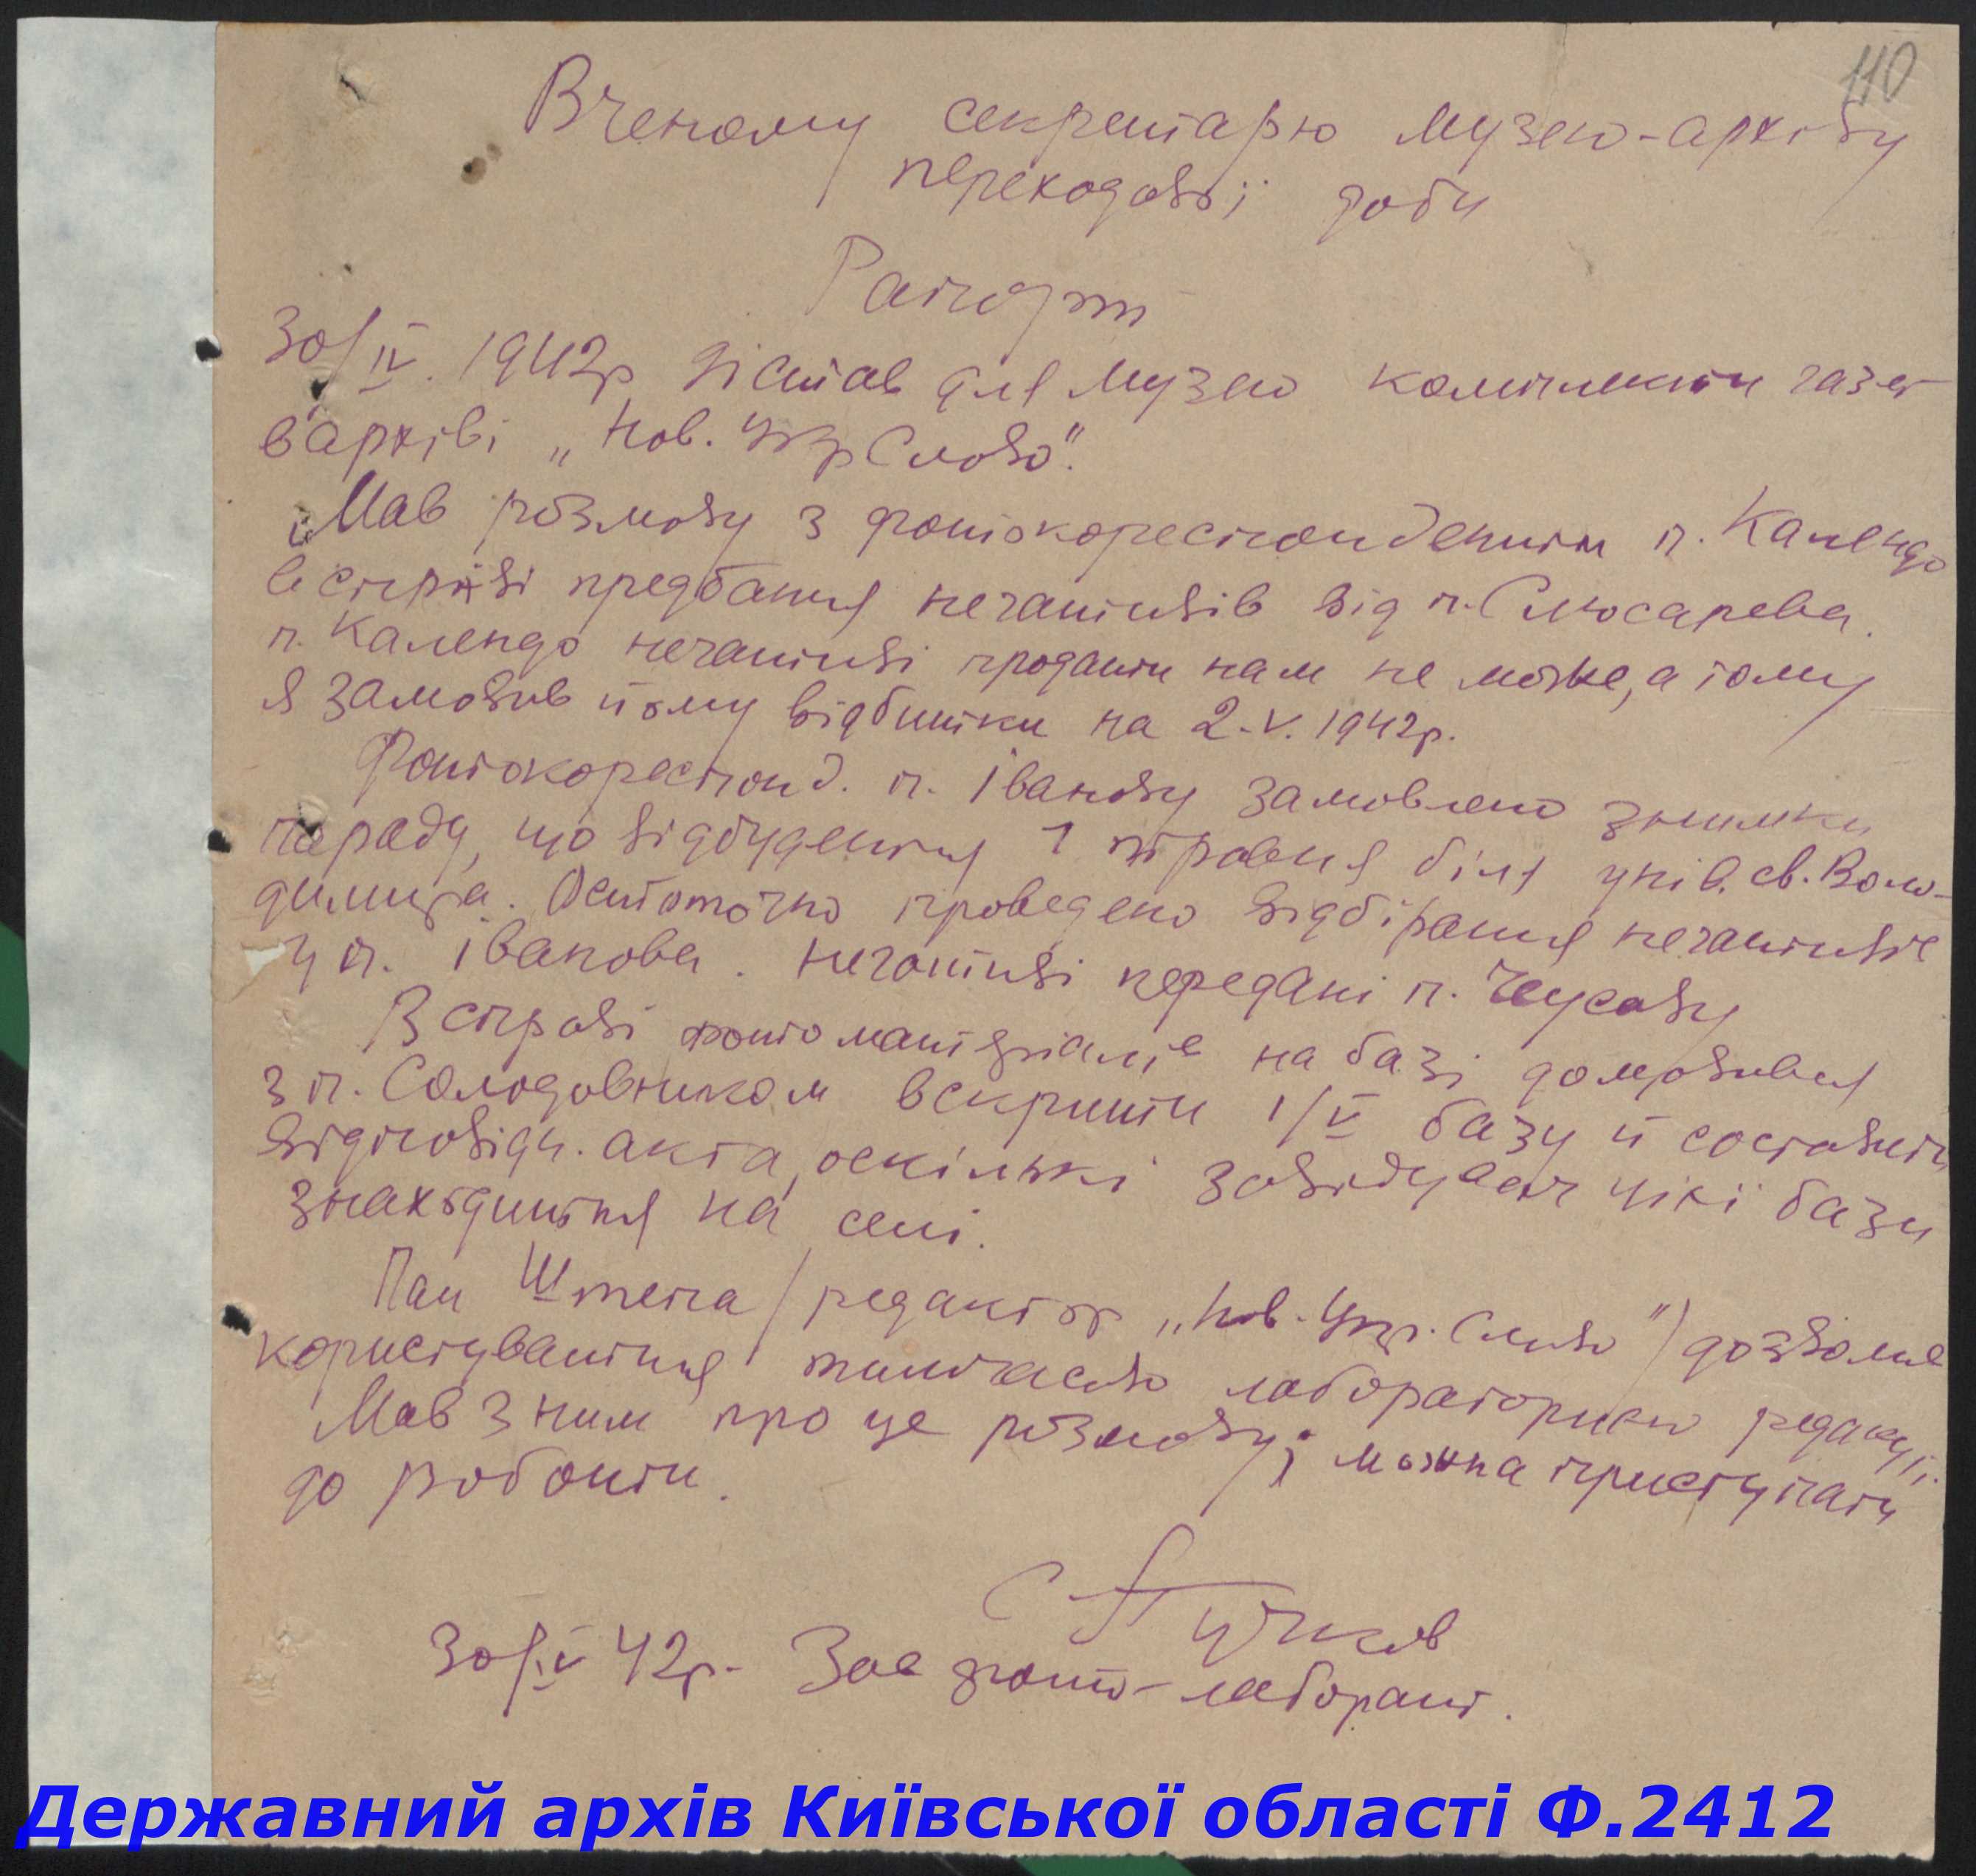 110
Вченому секретарю музею-архіву
переходової доби
Рапорт
30/IV. 1942р дістав для музею комплекти газет
в архіві „Нов. Укр Слово".
Мав розмову з фотокореспондентом п. Календо
в справі предбання негативів від п. Слюсарева.
п. Календо негативі продати нам не може, а тому
я замовив йому відбитки на 2.V. 1942р.
Фотокореспонд. п. Іванову замовлено знимки
параду, що відбудеться 1 травня біля унів. св. Воло-
димира. Остоточно проведено відбірання негативів
у п. Іванова. Негативі передані п. Чеусову
В справі фотоматеріалів на базі домовився
з п. Солодовником вскрити 1/V базу й соста­вити
відповідн. акта, оскількі завідувач цієї бази
знаходиться на селі.
Пан Штепа / редактор „Нов. Укр. Слово") дозволив
користуваться тимчасово лабораторією редакції.
Мав з ним про це розмову; можна приступати
до роботи.
30/IV 42р. Зав фото-лаборат.
Державний архів Київської області Ф.2412